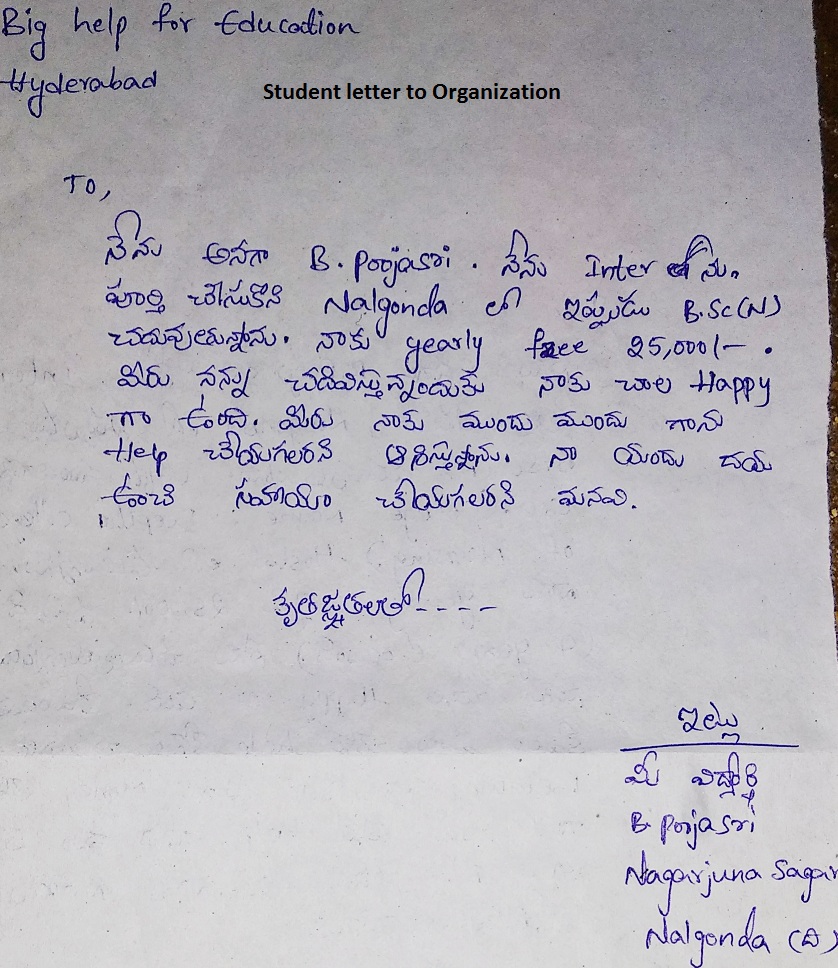 Big help for Education
Hyderabad
Student letter to Organization
TO,
నేను అనగా B. Poojasri. నేను Inter ను
పూర్తి చేసుకొని Nalgonda లో ఇప్పుడు B.Sc(N)
చదువుతున్నాను. నాకు yearly free 25,000/- .
మీరు నన్ను చదివిస్తున్నందుకు నాకు చాల Happy
గా ఉంది. మీరు నాకు ముందు ముందు గాను
Help చేయగలరని ఆశిస్తున్నాను. నా యందు దయ
ఉంచి సహాయం చేయగలరని మనవి.
కృతజ్ఞతలతో!----
ఇట్లు
మీ విద్యార్థి
B. Poojasri
Nagarjuna Sagar
Nalgonda (ది)